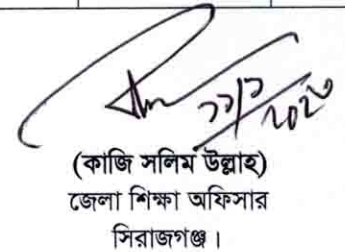 (কাজি সলিম উল্লাহ)
জেলা শিক্ষা অফিসার
সিরাজগঞ্জ।